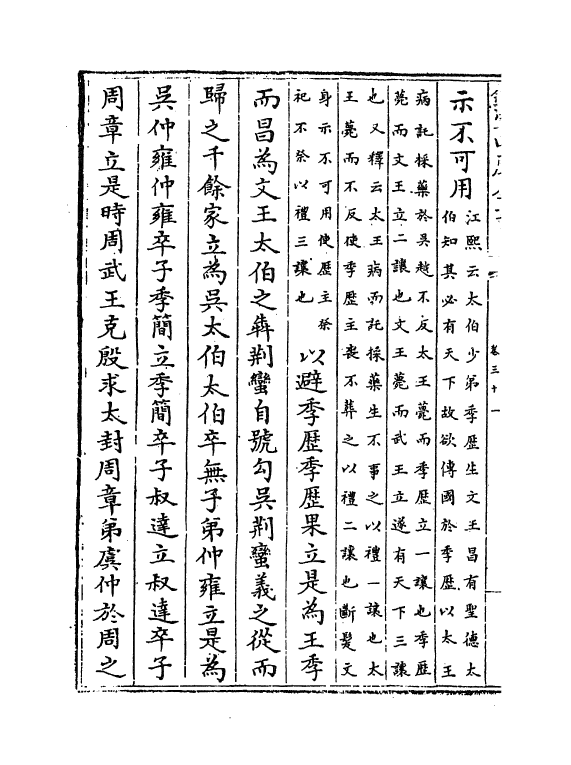 卷三十一
示不可用
江熙云太伯少弟季歷生文王昌有聖德太
伯知其必有天下故欲傳國於季歷以太王
病託採藥於吳越不反太王薨而季歷立一讓也季歷
薨而文王立二讓也文王薨而武王立遂有天下三讓
也又釋云太王病而託採藥生不事之以禮一讓也太
王薨而不反使季歷主喪不葬之以禮二讓也斷髮文
身示不可用使歷主祭
祀不祭以禮三讓也
以避季歷季歷果立是為王季
而昌為文王太伯之犇荆蠻自號勾吳荆蠻義之從而
歸之千餘家立為吳太伯太伯卒無子弟仲雍立是為
吳仲雍仲雍卒子季簡立季簡卒子叔達立叔達卒子
周章立是時周武王克殷求太封周章弟虞仲於周之